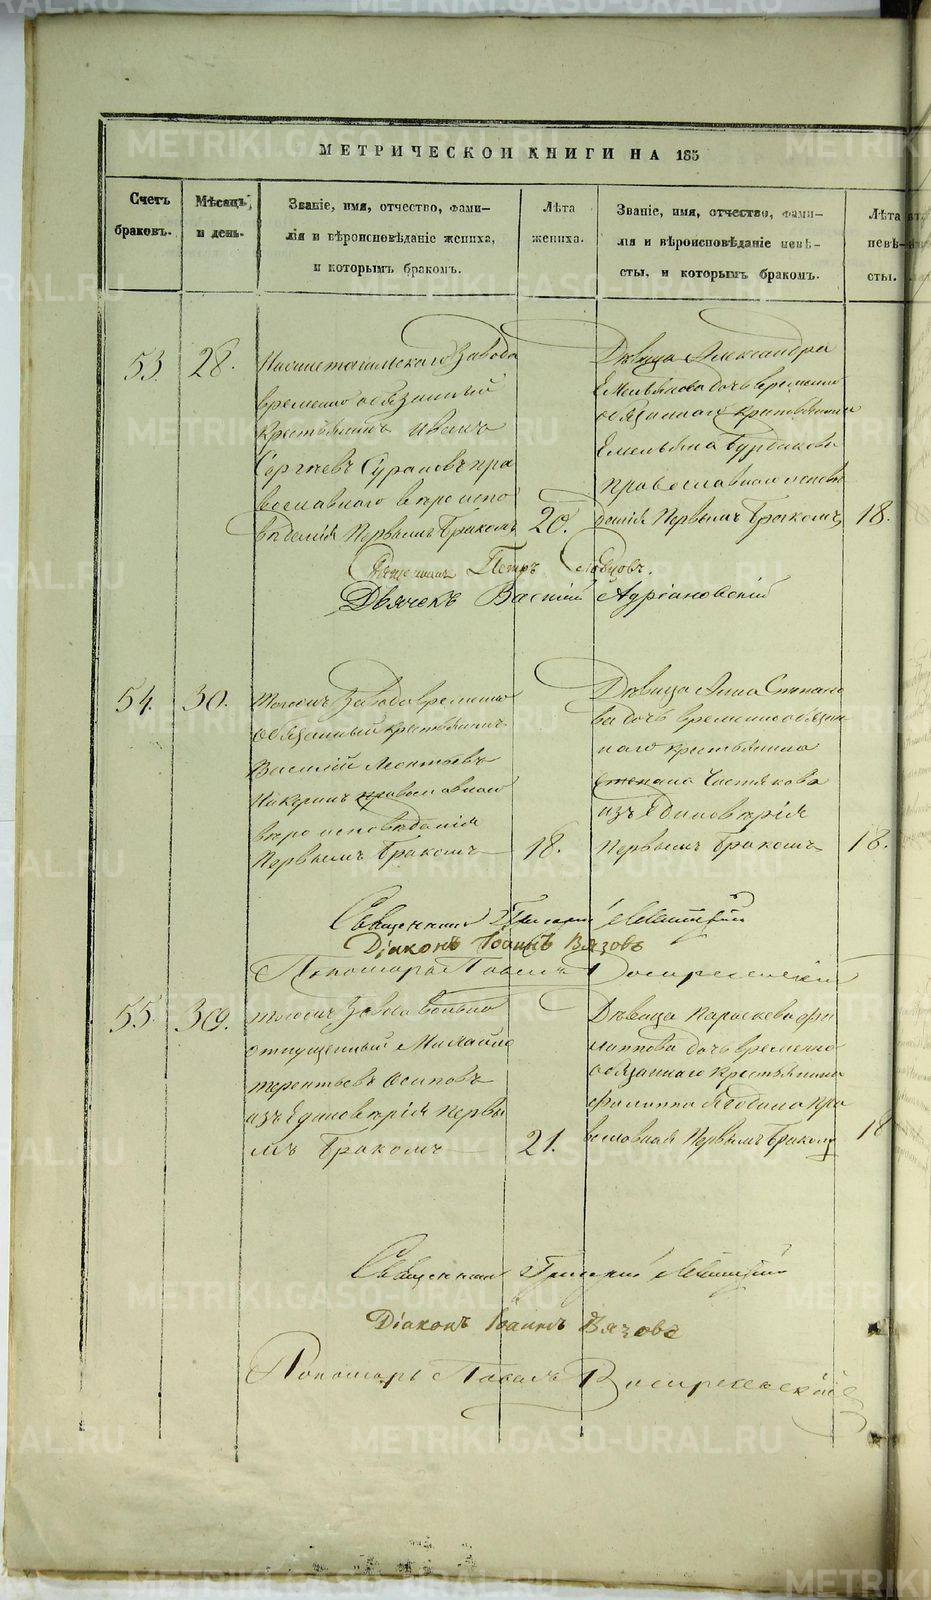 МЕТРИЧЕСКОЙ КНИГИ НА 185
Счетъ браковъ.
Мѣсяцъ и день.
Званіе, имя, отчество, фами-
лія и вѣроисповѣданіе жениха,
и которымъ бракомъ.
Лѣта
жениха.
Званіе, имя, отчество, фами-
лія и вѣроисповѣданіе невѣ-
сты, и которымъ бракомъ.
Лѣта
невѣ-
сты.
53.
28.
Нижнетагильскаго Завода
временно обязанный
крестьянинъ Иванъ
Сергѣевъ пра
вославнаго вѣроиспо
вѣданія первымъ бракомъ
20.
Дѣвица Александра
Емельянова дочь временно
обязаннаго крестьянина
Емельяна
православнаго исповѣ
данія первымъ бракомъ
18.
Священникъ Петръ
Дьячекъ Василій Адріановскій
54.
30.
тогожъ Завода временно
обязанный крестьянинъ
Василій Леонтьевъ
православнаго
вѣроисповѣданія
первымъ бракомъ
18.
Дѣвица Анна Степано
ва дочь временно обязан
наго крестьянина
Степана Чистякова
изъ Единовѣрія
первымъ бракомъ
18.
Священникъ Григорій
Діаконъ Іоаннъ Вязовъ
Пономарь Павелъ Воскресенскій
55.
30.
тогожъ Завода вольно
отпущенный Михайло
терентьевъ Осиповъ
изъ Единовѣрія первы
мъ бракомъ
21.
Дѣвица Параскева Фи
липпова дочь временно
обязаннаго крестьянина
Филиппа пра
вославная первымъ бракомъ
18
Священникъ Григорій
Діаконъ Іоаннъ Вязовъ
Пономарь Павелъ Воскресенскій
METRIKI.GASO-URAL.RU